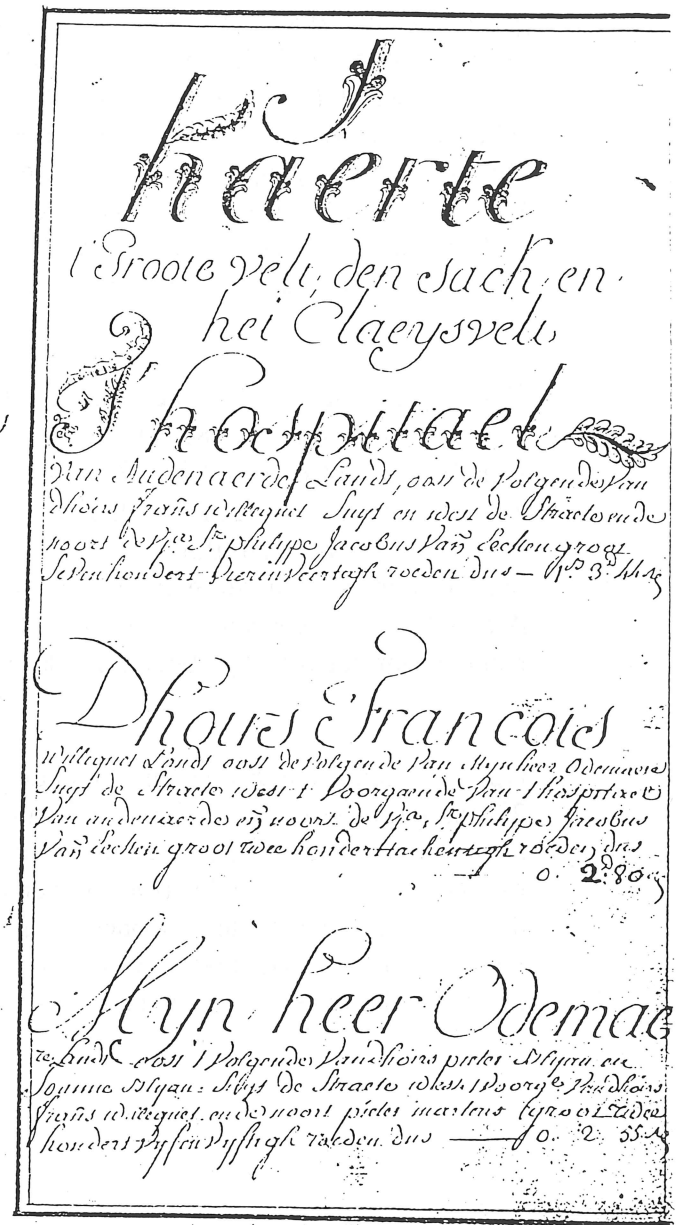 I
kaerte
t Groote velt, den sack, en
het Claeysvelt
T' hospitael
Van Audenaerde Landt, oost de volgende van
dhoirs frans willequet Suyt en west de Straete ende
noort de vje Sr philipe Jacobus Van Eecken groot
Seven hondert vierenveertigh roeden dus — 1 3 44
Dhoirs Francois
willequet Landt oost de volgende van Mynheer Odemaere
Suyt de Straete west t voorgaende van t hospitael
Van audenaerde en noort de vje Sr philipe Jacobus
Van Eecken groot twee hondert tachentigh roeden dus
— 0. 2. 80
Myn heer Odemae
re Landt oost t volgende van dhoirs pieter
Joanne Suyt de Straete west t voorge van dhoirs
frans willequet ende noort pieter martens groot twee
hondert vyfenvyftigh roeden dus — 0. 2 55